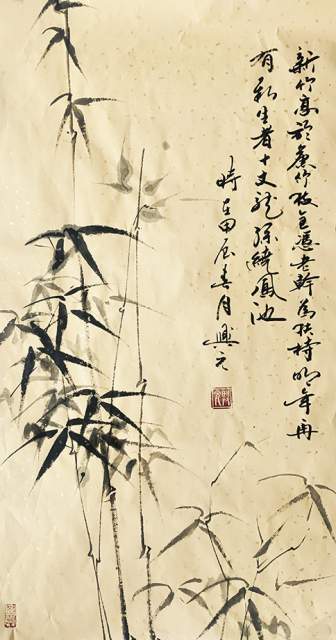 新竹高於舊竹枝全憑老幹為扶持明年再
有新生者十丈龍孫繞鳳池
時在甲辰春月興元